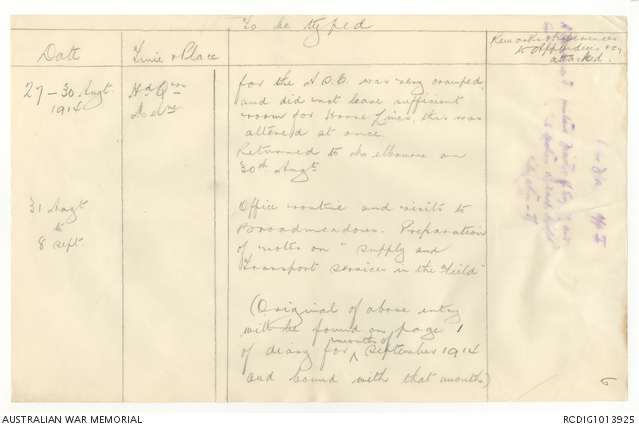 To be typed
Date
Time & Place
Remarks & references to Appendices &c. attached
27-30 Augt 1914
Hd Qrs
for the A.D.C. was very cramped
and did not leave sufficient
room for Horse Lines, this was
altered at once.
Returned to Melbourne on
30th Augt
31 Augt
to
8 Sept
Office routine and visits to
Broadmeadows. Preparation
of "notes on "Supply and
Transport Services in the Field"
(Original of above entry
will be found on page 1
of diary for month of September 1914
and bound with that month)
6
AUSTRALIAN WAR MEMORIAL
RCDIG1013925